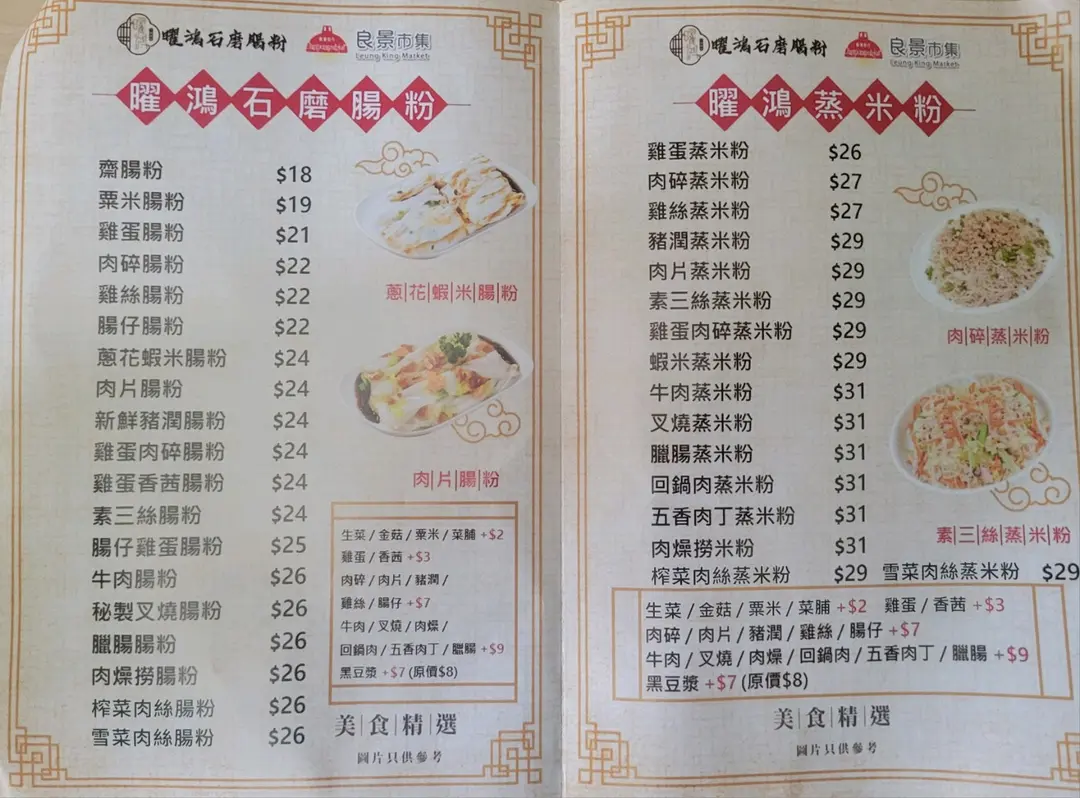 曜鴻石磨腸粉 良景市集
Leung King Market
曜鴻石磨腸粉
齋腸粉 $18
粟米腸粉 $19
雞蛋腸粉 $21
肉碎腸粉 $22
雞絲腸粉 $22
腸仔腸粉 $22
蔥花蝦米腸粉 $24
肉片腸粉 $24
新鮮豬潤腸粉 $24
雞蛋肉碎腸粉 $24
雞蛋香茜腸粉 $24
素三絲腸粉 $24
腸仔雞蛋腸粉 $25
牛肉腸粉 $26
秘製叉燒腸粉 $26
臘腸腸粉 $26
肉燥撈腸粉 $26
榨菜肉絲腸粉 $26
雪菜肉絲腸粉 $26
蔥|花|蝦|米|腸|粉
肉|片|腸|粉
生菜/金菇/粟米/菜脯 +$2
雞蛋/香茜 +$3
肉碎/肉片/豬潤/
雞絲/腸仔 +$7
牛肉/叉燒/肉燥/
回鍋肉/五香肉丁/臘腸 +$9
黑豆漿 +$7 (原價$8)
美|食|精|選
圖片只供參考
曜鴻石磨腸粉 良景市集
Leung King Market
曜鴻蒸米粉
雞蛋蒸米粉 $26
肉碎蒸米粉 $27
雞絲蒸米粉 $27
豬潤蒸米粉 $29
肉片蒸米粉 $29
素三絲蒸米粉 $29
雞蛋肉碎蒸米粉 $29
蝦米蒸米粉 $29
牛肉蒸米粉 $31
叉燒蒸米粉 $31
臘腸蒸米粉 $31
回鍋肉蒸米粉 $31
五香肉丁蒸米粉 $31
肉燥撈米粉 $31
榨菜肉絲蒸米粉 $29 雪菜肉絲蒸米粉 $29
肉|碎|蒸|米|粉
素|三|絲|蒸|米|粉
生菜/金菇/粟米/菜脯 +$2 雞蛋/香茜 +$3
肉碎/肉片/豬潤/雞絲/腸仔 +$7
牛肉/叉燒/肉燥/回鍋肉/五香肉丁/臘腸 +$9
黑豆漿 +$7 (原價$8)
美|食|精|選
圖片只供參考